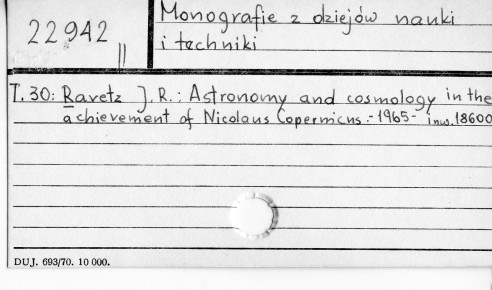 22942 II
Monografie z dziejów nauki
i techniki
T. 30: Ravetz J. R.: Astronomy and cosmology in the
achievement of Nicolaus Copernicus.- 1965- inw. 18600
DUJ. 693/70. 10 000.